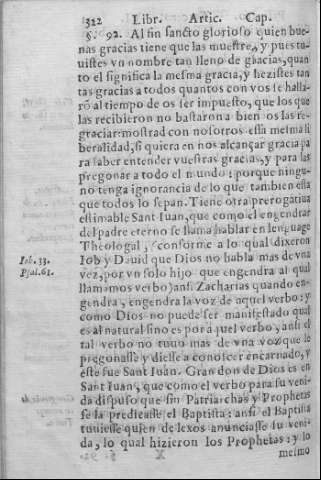 322 Libr. Artic. Cap.
§. 92. Al fin sancto glorioso quien bue-
nas gracias tiene que las muestre, y pues tu-
uistes vn nombre tan lleno de gracias, quan-
to el significa la mesma gracia, y hezistes tan
tas gracias a todos quantos con vos se halla-
rō al tiempo de os ser impuesto, que los que
las recibieron no bastaron a bien os las re-
graciar: mostrad con nosotros essa mesma li
beralidad, si quiera en nos alcançar gracia pa
ra saber entender vuestras gracias, y para las
pregonar a todo el mundo: porque ningu-
no tenga ignorancia de lo que tambien esta
que todos lo sepan. Tiene otra prerogatiua
estimable Sant Iuan, que como el engendrar
del padre eterno se llama hablar en lenguage
Theologal, conforme a lo qual dixeron
Iob y Dauid que Dios no habla mas de vna
vez, por vn solo hijo que engendra al qual
llamamos verbo) ansi Zacharias quando en-
gendra, engendra la voz de aquel verbo: y
como Dios no puede ser manifestado qual
es al natural sino es por aquel verbo, ansi el
tal verbo no tuuo mas de vna voz que le
pregonasse y diesse a conoscer encarnado, y
este fue Sant Iuan. Gran don de Dios es en
Sant Iuan, que como el verbo para su veni-
da dispuso que sin Patriarchas y Prophetas
se la predicasse el Baptista: ansi el Baptista
tuuiesse quien de lexos anunciasse su veni-
da, lo qual hizieron los Prophetas: y lo
mesmo
Iob. 33.
Psal. 61.